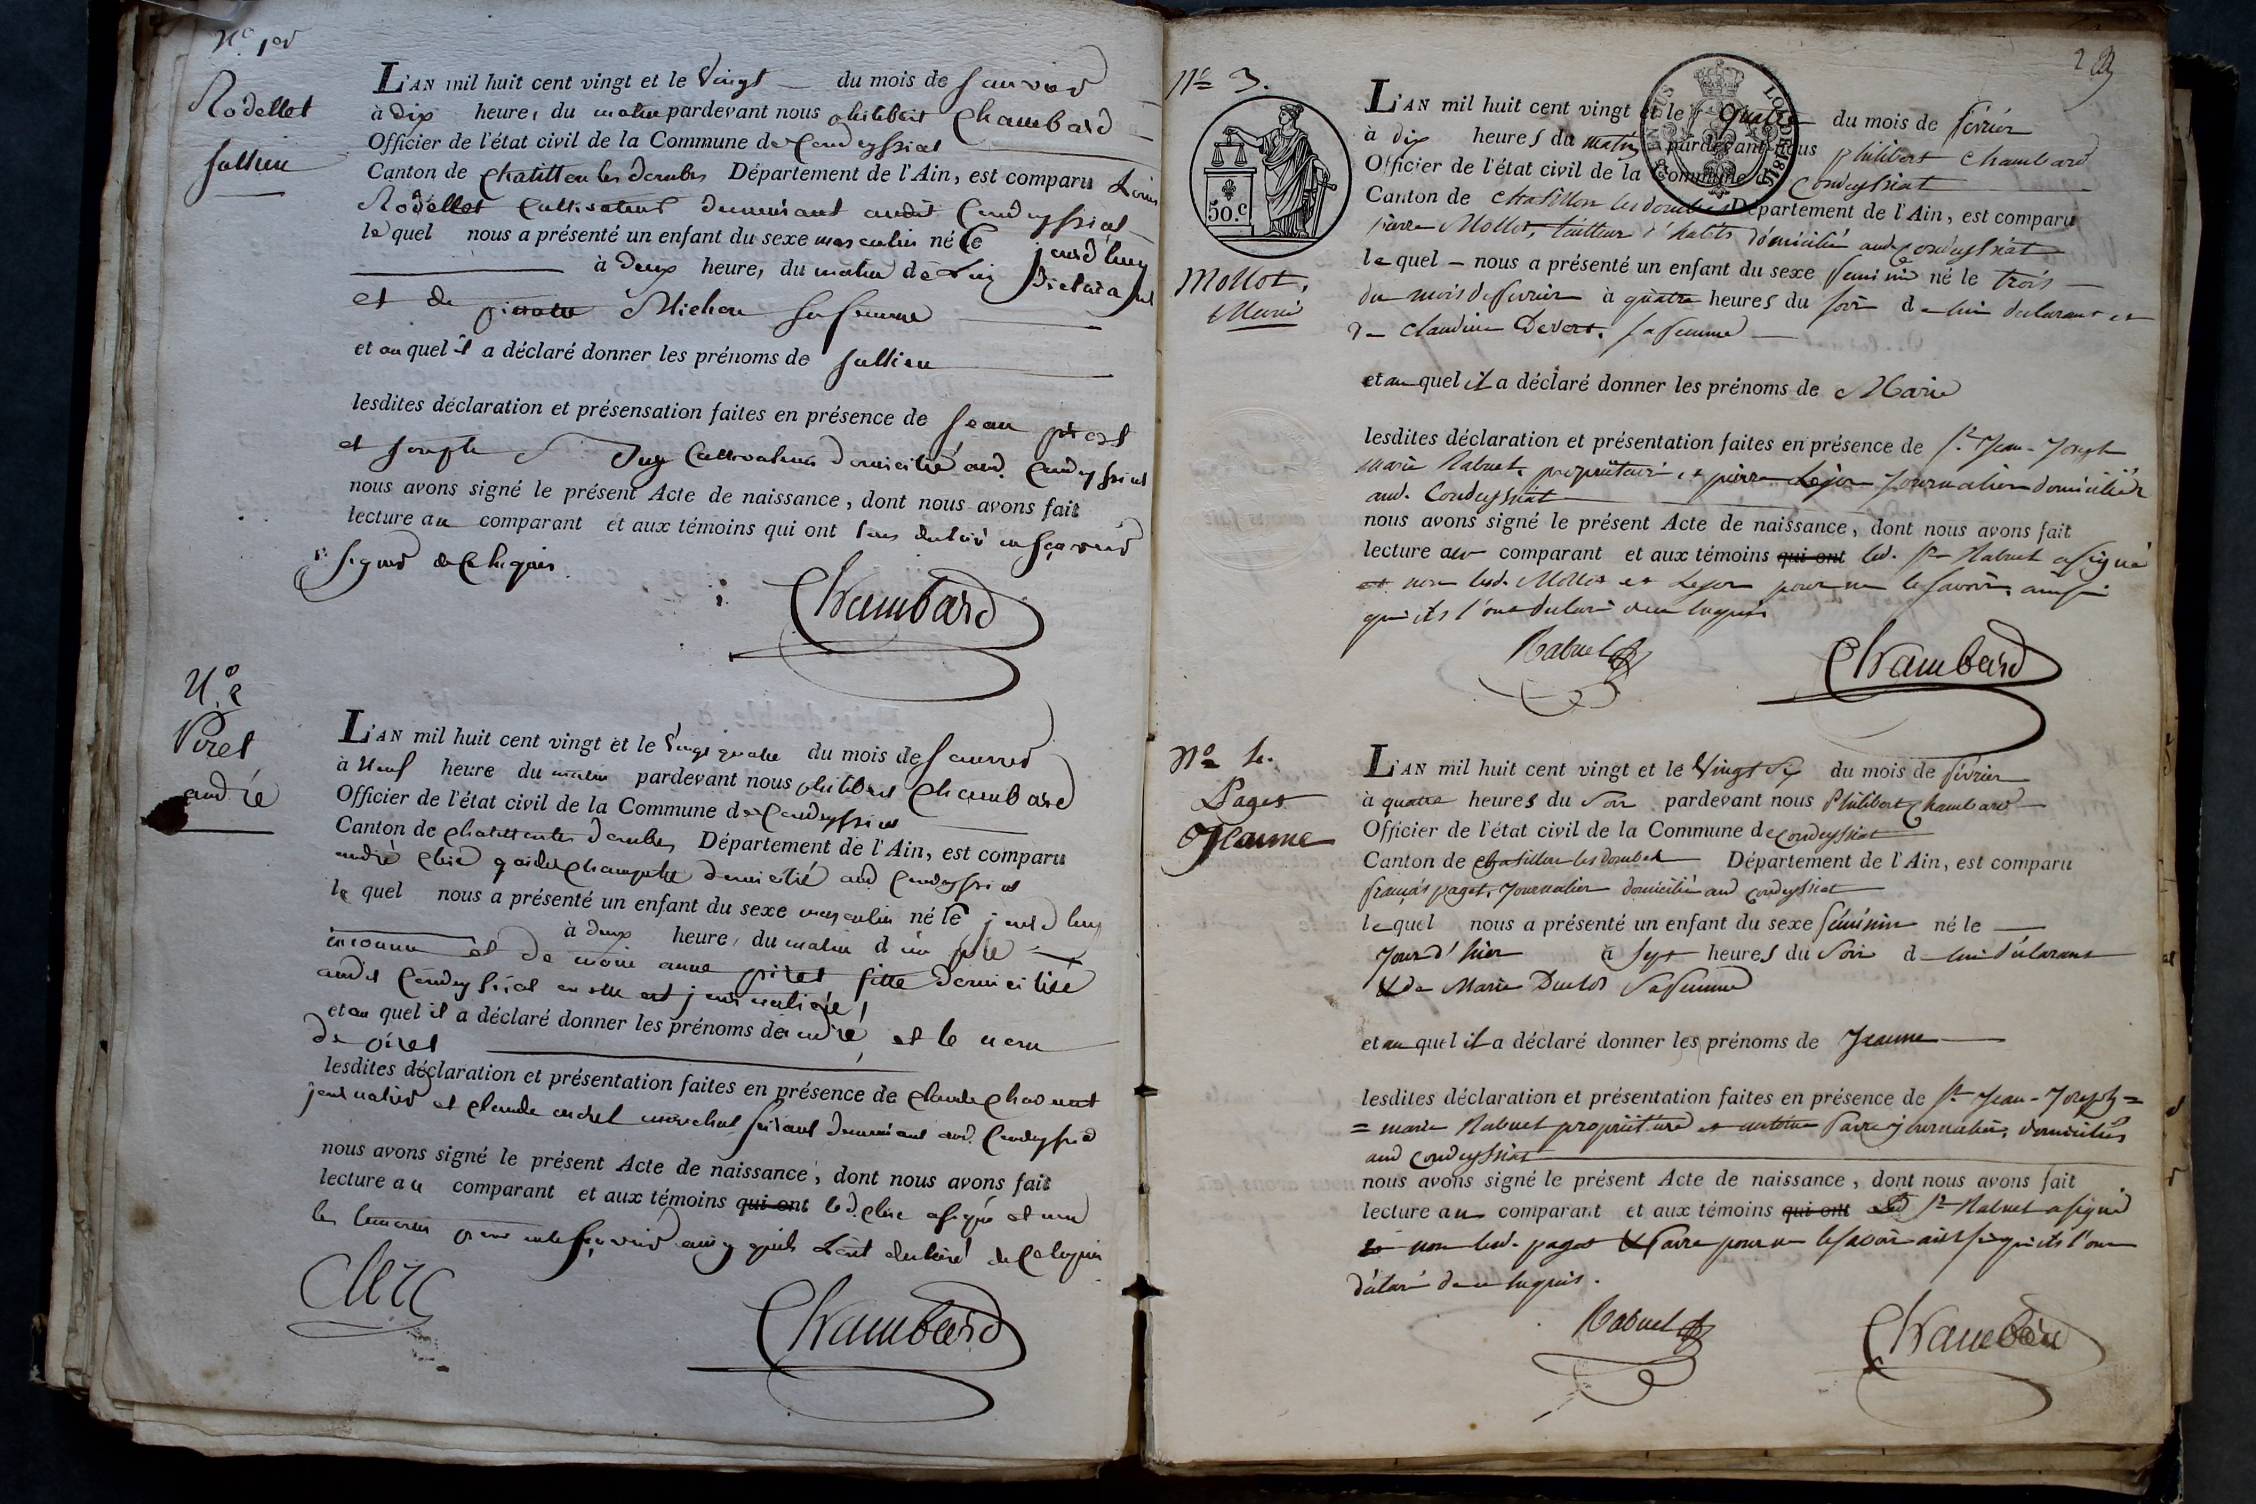 N.o 1er
Rodellet
Jullien
L'AN mil huit cent vingt et le Vingt du mois de Janvier
à dix heures du matin pardevant nous philibert Chambard
Officier de l'état civil de la Commune de Condeyssiat
Canton de Chatillon les dombes Département de l'Ain, est comparu Louis
Rodellet Cultivateur demeurant audit Condeyssiat
lequel nous a présenté un enfant du sexe masculin né le jourd'huy
à deux heures du matin de Lui Déclarant
et de Michon sa femme
et auquel il a déclaré donner les prénoms de Jullien
lesdites déclaration et présensation faites en présence de Jean
et Joseph Cultivateurs domicilié aud. Condeyssiat
nous avons signé le présent Acte de naissance, dont nous avons fait
lecture au comparant et aux témoins qui ont tous déclaré ne sçavoir
signer de ce Enquis
Chambard
N.o 2
Piret
andré
L'AN mil huit cent vingt et le Vingt quatre du mois de Janvier
à Neuf heure du matin pardevant nous philibert Chambard
Officier de l'état civil de la Commune de Condeyssiat
Canton de Chatillon les dombes Département de l'Ain, est comparu
andré Clerc garde Champetre domicilié aud Condeyssiat
lequel nous a présenté un enfant du sexe masculin né le jourd'huy
à deux heure, du matin d'un père
inconnu et de marie anne piret fille domicilié
audit Condeyssiat
et au quel il a déclaré donner les prénoms de andré et le nom
de piret
lesdites déclaration et présentation faites en présence de Claude
journalier et Claude marechal demeurant aud. Condeyssiat
nous avons signé le présent Acte de naissance, dont nous avons fait
lecture au comparant et aux témoins qui ont led. Clerc a signé et non
les temoins pour ne le sçavoir ainsy quils L'ont déclaré de Ce Requis
Clerc
Chambard
2
N.o 3.
50.c
LOI DE 1816
Mollot,
Marie
L'AN mil huit cent vingt et le Quatre du mois de février
à dix heures du matin pardevant nous Philibert Chambard
Officier de l'état civil de la Commune de Condeyssiat
Canton de Chatillon les dombes Département de l'Ain, est comparu
pierre Mollot, tailleur d'habits domicilié aud. Condeyssiat
lequel nous a présenté un enfant du sexe feminin né le trois
du mois de fevrier à quatre heures du soir de lui declarant et
de Claudine Devert, sa femme
et au quel il a déclaré donner les prénoms de Marie
lesdites déclaration et présentation faites en présence de Sr. Jean-Joseph
marie Rabuel, propriétaire et pierre Lejon Journalier domiciliés
aud. Condeyssiat
nous avons signé le présent Acte de naissance, dont nous avons fait
lecture au comparant et aux témoins qui ont led. Sr Rabuel a signé
et non lesd. Mollot et Lejon pour ne le savoir, ainsi
qu'ils l'ont declaré de ce enquis
Rabuel
Chambard
N.o 4.
Paget
Jeanne
L'AN mil huit cent vingt et le Vingt Six du mois de février
à quatre heures du Soir pardevant nous Philibert Chambard
Officier de l'état civil de la Commune de Condeyssiat
Canton de Chatillon les dombes Département de l'Ain, est comparu
françois paget, Journalier domicilié aud Condeyssiat
lequel nous a présenté un enfant du sexe féminin né le
Jour d'hier à Sept heures du Soir de lui déclarant
& de Marie Duclos Sa femme
et au quel il a déclaré donner les prénoms de Jeanne
lesdites déclaration et présentation faites en présence de Sr. Jean-Joseph=
=marie Rabuel propriétaire et antoine Favre journalier, domiciliés
aud Condeyssiat
nous avons signé le présent Acte de naissance, dont nous avons fait
lecture au comparant et aux témoins qui ont led Sr Rabuel a signé
et non lesd. paget & Favre pour ne le savoir ainsi qu'ils l'ont
déclaré de ce enquis.
Rabuel
Chambard